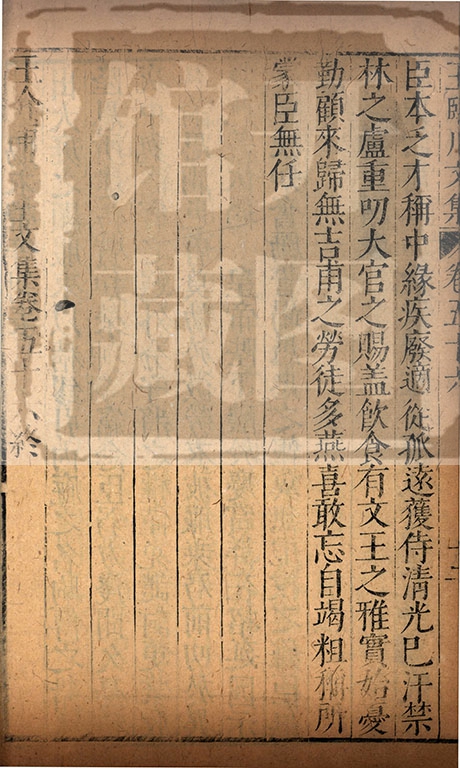 王臨川文集 卷五十六
臣本之才稱中緣疾廢適從孤遠獲侍清光巳汙禁
林之廬重叨大官之賜盖飲食有文王之雅實始憂
勤顧來歸無吉甫之勞徒多燕喜敢忘自竭粗稱所
蒙臣無任
文集卷五十 終